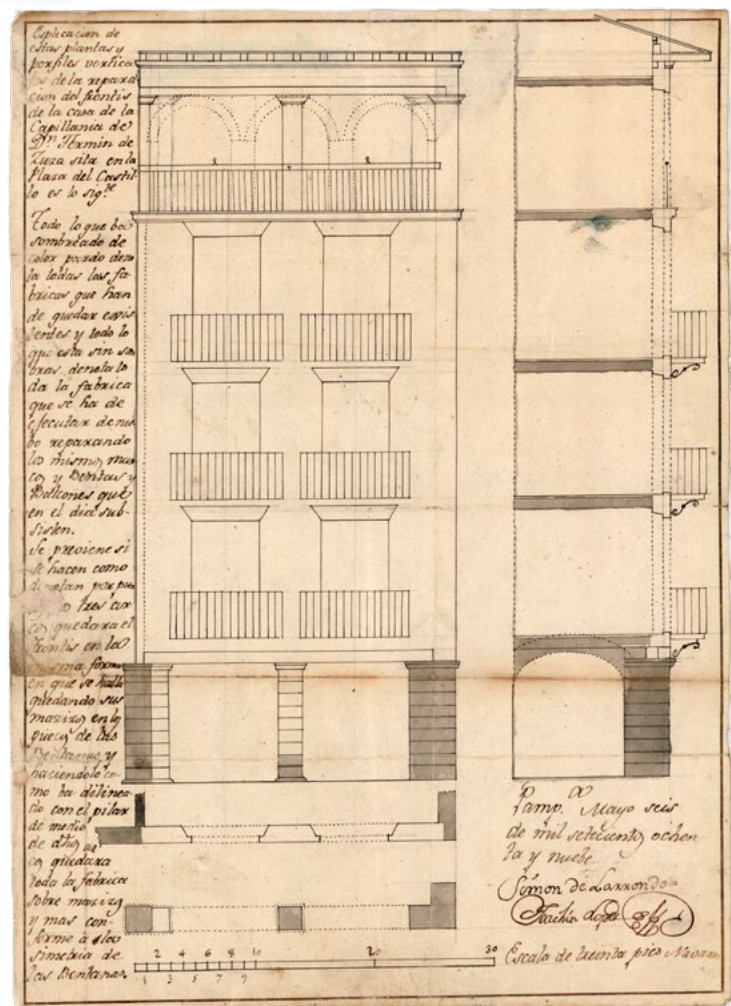 Esplicacion de
estas plantas y
porfiles vertica
les de la repara
cion del frontis
de la casa de la
Capillania de
Dⁿ Fermin de
Zuza sita en la
Plaza del Castil
lo es lo sigᵗᵉ
Todo lo que ba
sombreado de
color pardo deno
ta todas las fa
bricas que han
de quedar exis
tentes y todo lo
que esta sin som
bras, denota to
da la fabrica
que se ha de
ejecutar de nue
bo reparando
los mismos mar
cos y Bentanas y
Balcones que
en el dia sub-
sisten.
Se previene si
se hacen como
denotan por pun
tres ar
cos quedara el
frontis en la
misma forma
en que se halla
quedando sus
mazizos en los
guecos de las
Bentanas, y
haciendolo co-
mo ha dilinea
do con el pilar
de medio
de dhos
cos quedara
toda la fabrica
sobre mazizo
y mas con-
forme à la
simetria de
las Bentanas.
Pamp.ᵃ Mayo seis
de mil setecientos ochen
ta y nuebe
Simon de Larrondo
Joachin Lopez
2 4 6 8 10 20 30
1 3 5 7 9
Escala de treinta pies Navarros